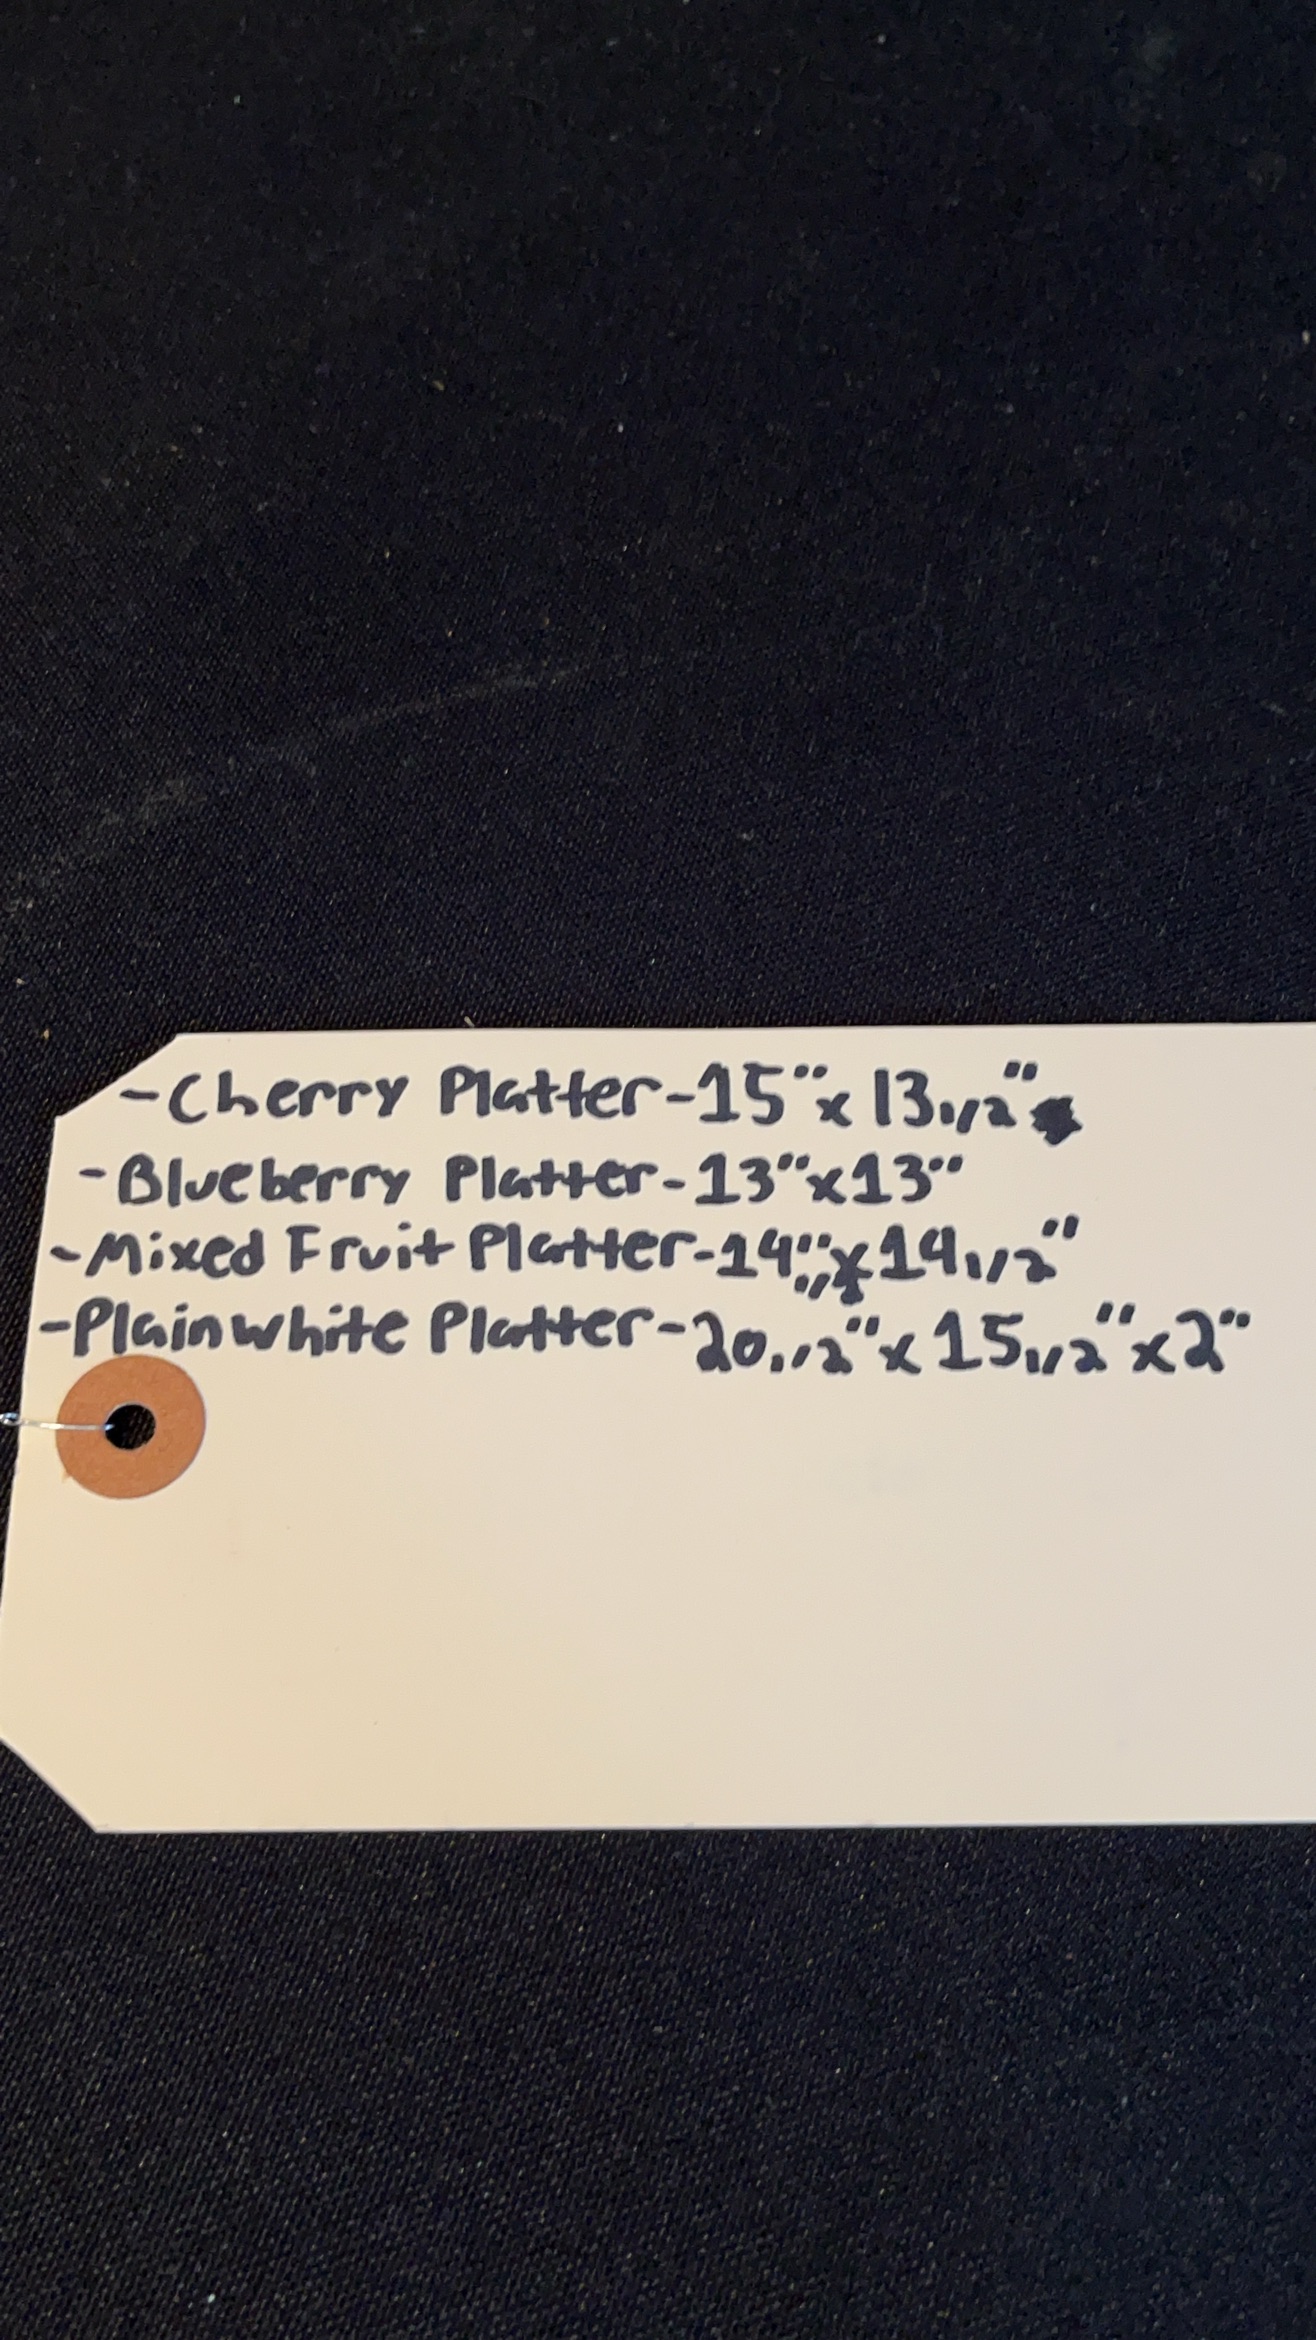 -Cherry Platter-15"x 13 1/2"
-Blueberry Platter-13"x13"
-Mixed Fruit Platter-14 x14 1/2"
-Plain white Platter-20 1/2"x 15 1/2"x2"